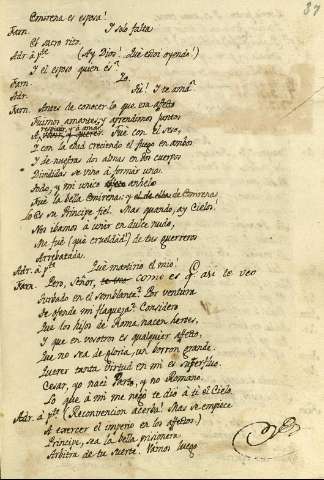 37
Emirena es esposa!
Farn. Y solo falta
El sacro rito.
Adr. á pte. (Ay Dios! Qué estoi oyendo!)
Y el esposo quien es?
Farn. Yo.
Adr. Tú! Y te ama?
Farn. Antes de conocer lo que era afecto
Fuimos amantes, y aprendimos juntos
respirar, y á amar.
A vivir, y querer. Fue con el sexo,
Y con la edad creciendo el fuego en ambos
Y de nuestras dos almas en dos cuerpos
Divididas se vino á formar una.
Todo, y mi unico afecto anhelo
Fue la bella Emirena; y el de ella Emirena
lo es su Principe fiel. Mas quando, ay Cielos!
Nos ibamos á unir en dulce nudo,
Me fué (qué crueldad!) de tus guerreros
Arrebatada.
Adr. á pte. Qué martirio el mio!
Farn. Pero, Señor, como es q. asi te veo
Turbado en el semblante? Por ventura
Te ofende mi flaqueza? Considero
Que los hijos de Roma nacen heroes,
Y que en vosotros es qualquier afecto,
Que no sea de gloria, un borron grande.
Querer tanta virtud en mi es superfluo.
Cesar, yo naci Parto, y no Romano.
Lo que á mi me negó te dió á ti el Cielo
Adr. á pte. (Reconvencion acerba! Mas se empiece
A exercer el imperio en los afectos.)
Principe, sea la bella prisionera
Arbitra de tu suerte. Vamos luego